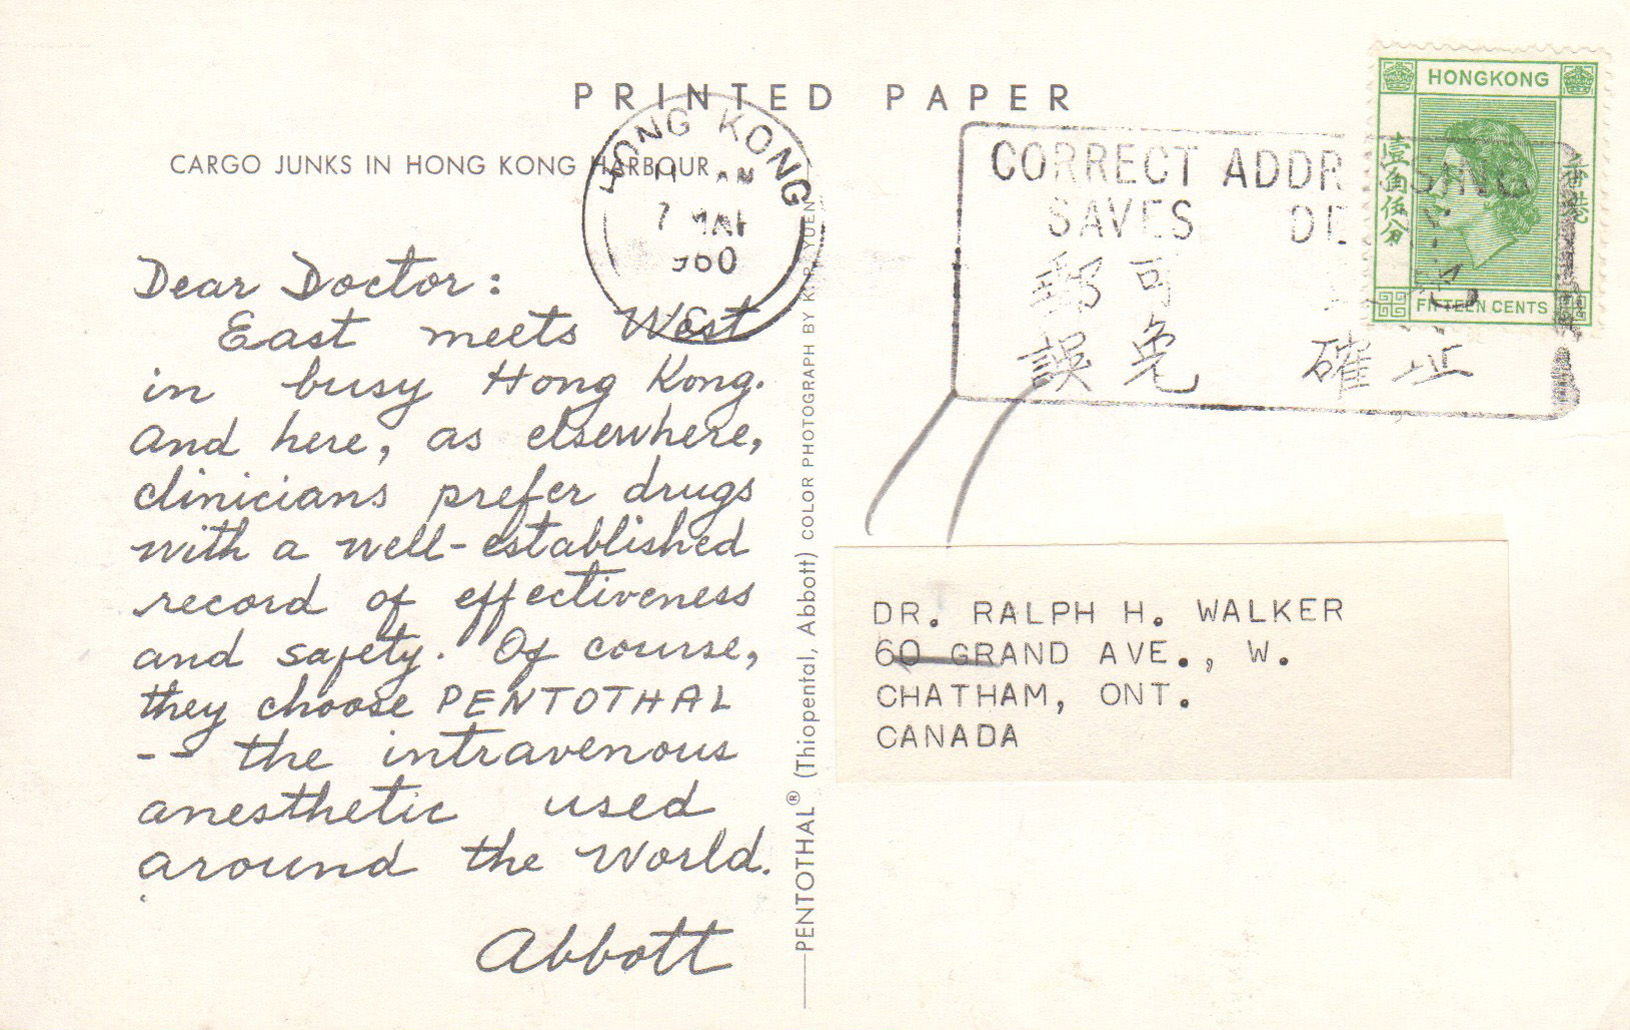 PRINTED PAPER
CARGO JUNKS IN HONG KONG HARBOUR
Dear Doctor:
East meets West
in busy Hong Kong.
And here, as elsewhere,
clinicians prefer drugs
with a well-established
record of effectiveness
and safety. Of course,
they choose PENTOTHAL
-- the intravenous
anesthetic used
around the World.
Abbott
PENTOTHAL® (Thiopental, Abbott) COLOR PHOTOGRAPH BY K. P. YUEN
HONG KONG
11 AM
7 MAR
960
CORRECT ADDR SING
SAVES DE
郵可
誤免 確址
HONGKONG
壹角伍分
香港
FIFTEEN CENTS
DR. RALPH H. WALKER
60 GRAND AVE., W.
CHATHAM, ONT.
CANADA